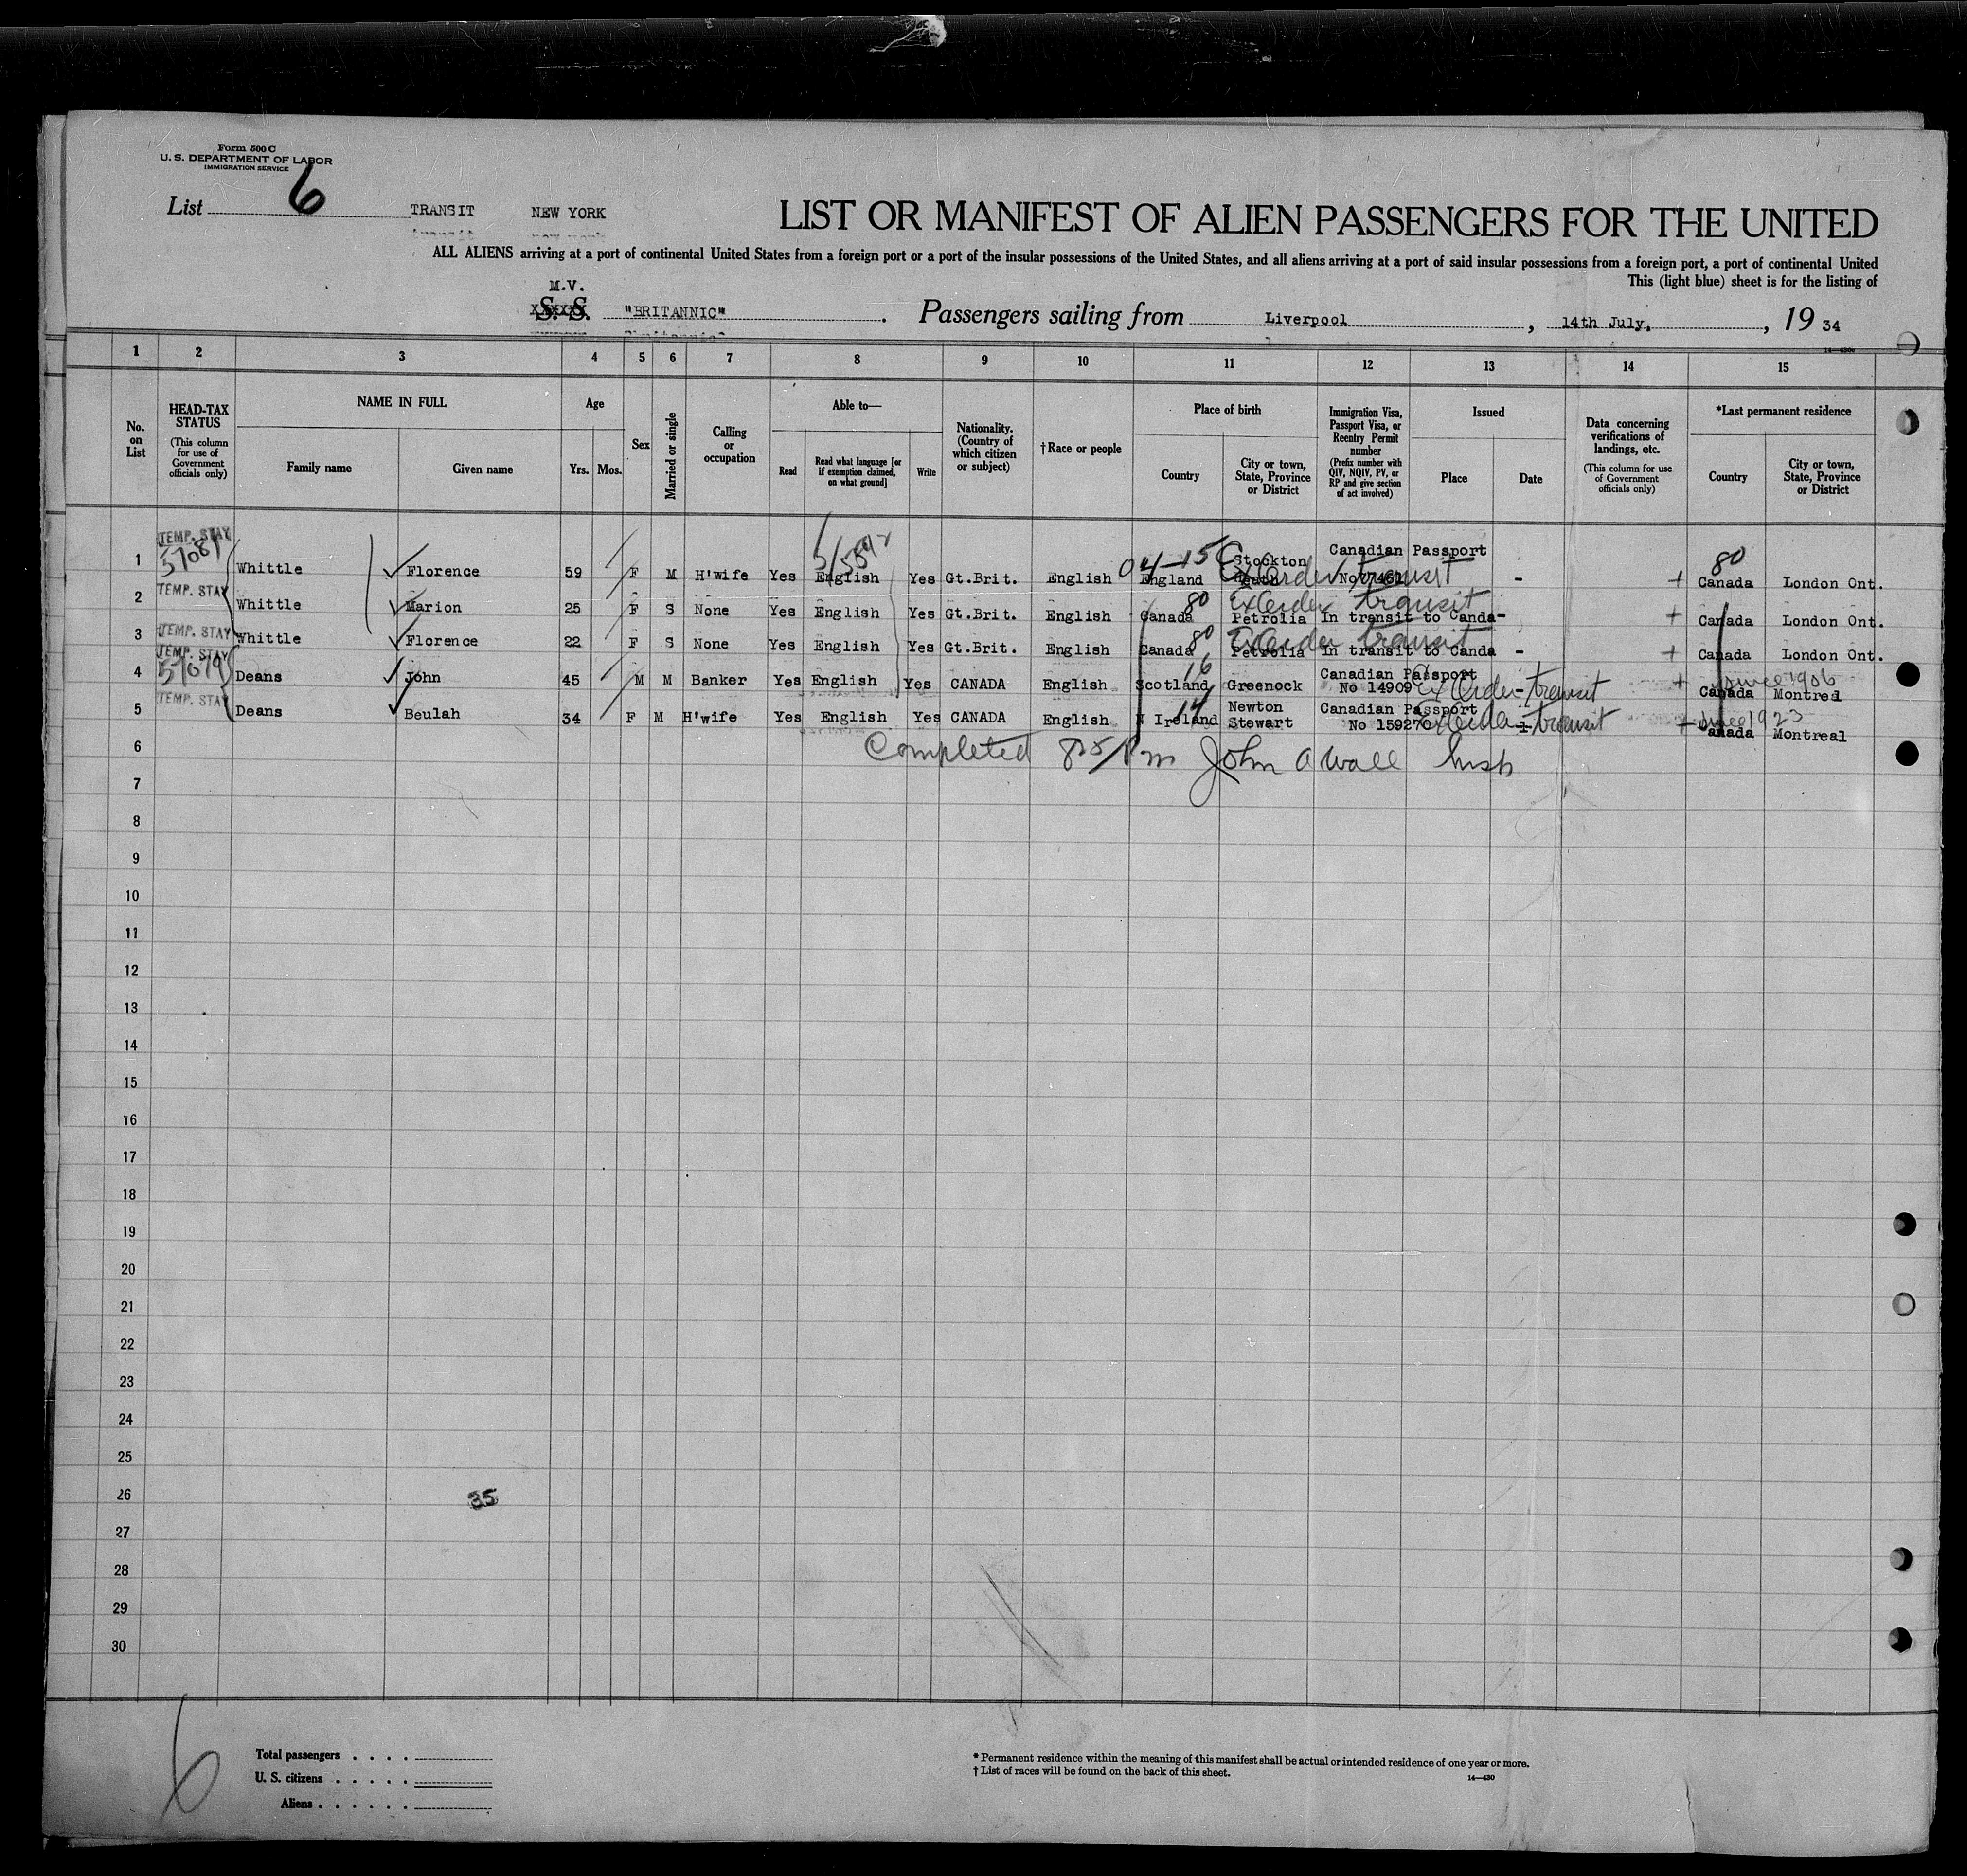 Form 500 C
U. S. DEPARTMENT OF LABOR
IMMIGRATION SERVICE
List 6 TRANSIT NEW YORK
LIST OR MANIFEST OF ALIEN PASSENGERS FOR THE UNITED
ALL ALIENS arriving at a port of continental United States from a foreign port or a port of the insular possessions of the United States, and all aliens arriving at a port of said insular possessions from a foreign port, a port of continental United
This (light blue) sheet is for the listing of
M.V.
S. S. "BRITANNIC". Passengers sailing from Liverpool, 14th July, , 19 34
1 2 3 4 5 6 7 8 9 10 11 12 13 14 15
No. on List
HEAD-TAX STATUS (This column for use of Government officials only)
NAME IN FULL
Family name Given name
Age
Yrs. Mos.
Sex
Married or single
Calling or occupation
Able to—
Read Read what language [or if exemption claimed, on what ground] Write
Nationality. (Country of which citizen or subject)
† Race or people
Place of birth
Country City or town, State, Province or District
Immigration Visa, Passport Visa, or Reentry Permit number (Prefix number with QIV, NQIV, PV, or RP and give section of act involved)
Issued
Place Date
Data concerning verifications of landings, etc. (This column for use of Government officials only)
*Last permanent residence
Country City or town, State, Province or District
1 TEMP. STAY Whittle Florence 59 F M H'wife Yes English Yes Gt.Brit. English 04-15 England Stockton Canadian Passport Ex Order transit - + 80 Canada London Ont.
2 TEMP. STAY Whittle Marion 25 F S None Yes English Yes Gt.Brit. English 80 Canada Petrolia Ex Order transit In transit to Canda- + Canada London Ont.
3 TEMP. STAY Whittle Florence 22 F S None Yes English Yes Gt.Brit. English 80 Canada Petrolia Ex Order transit In transit to Canda - + Canada London Ont.
4 TEMP. STAY Deans John 45 M M Banker Yes English Yes CANADA English 16 Scotland Greenock Canadian Passport No 14909 Ex Order - transit + since 1906 Canada Montred
5 TEMP. STAY Deans Beulah 34 F M H'wife Yes English Yes CANADA English 14 N Ireland Newton Stewart Canadian Passport No 159270 Ex Order - transit + since 1923 Canada Montreal
6 Completed John A Wall Insp
7
8
9
10
11
12
13
14
15
16
17
18
19
20
21
22
23
24
25
26 35
27
28
29
30
6
Total passengers . . . .
U. S. citizens . . . . .
Aliens . . . . . .
* Permanent residence within the meaning of this manifest shall be actual or intended residence of one year or more.
† List of races will be found on the back of this sheet.
14—430